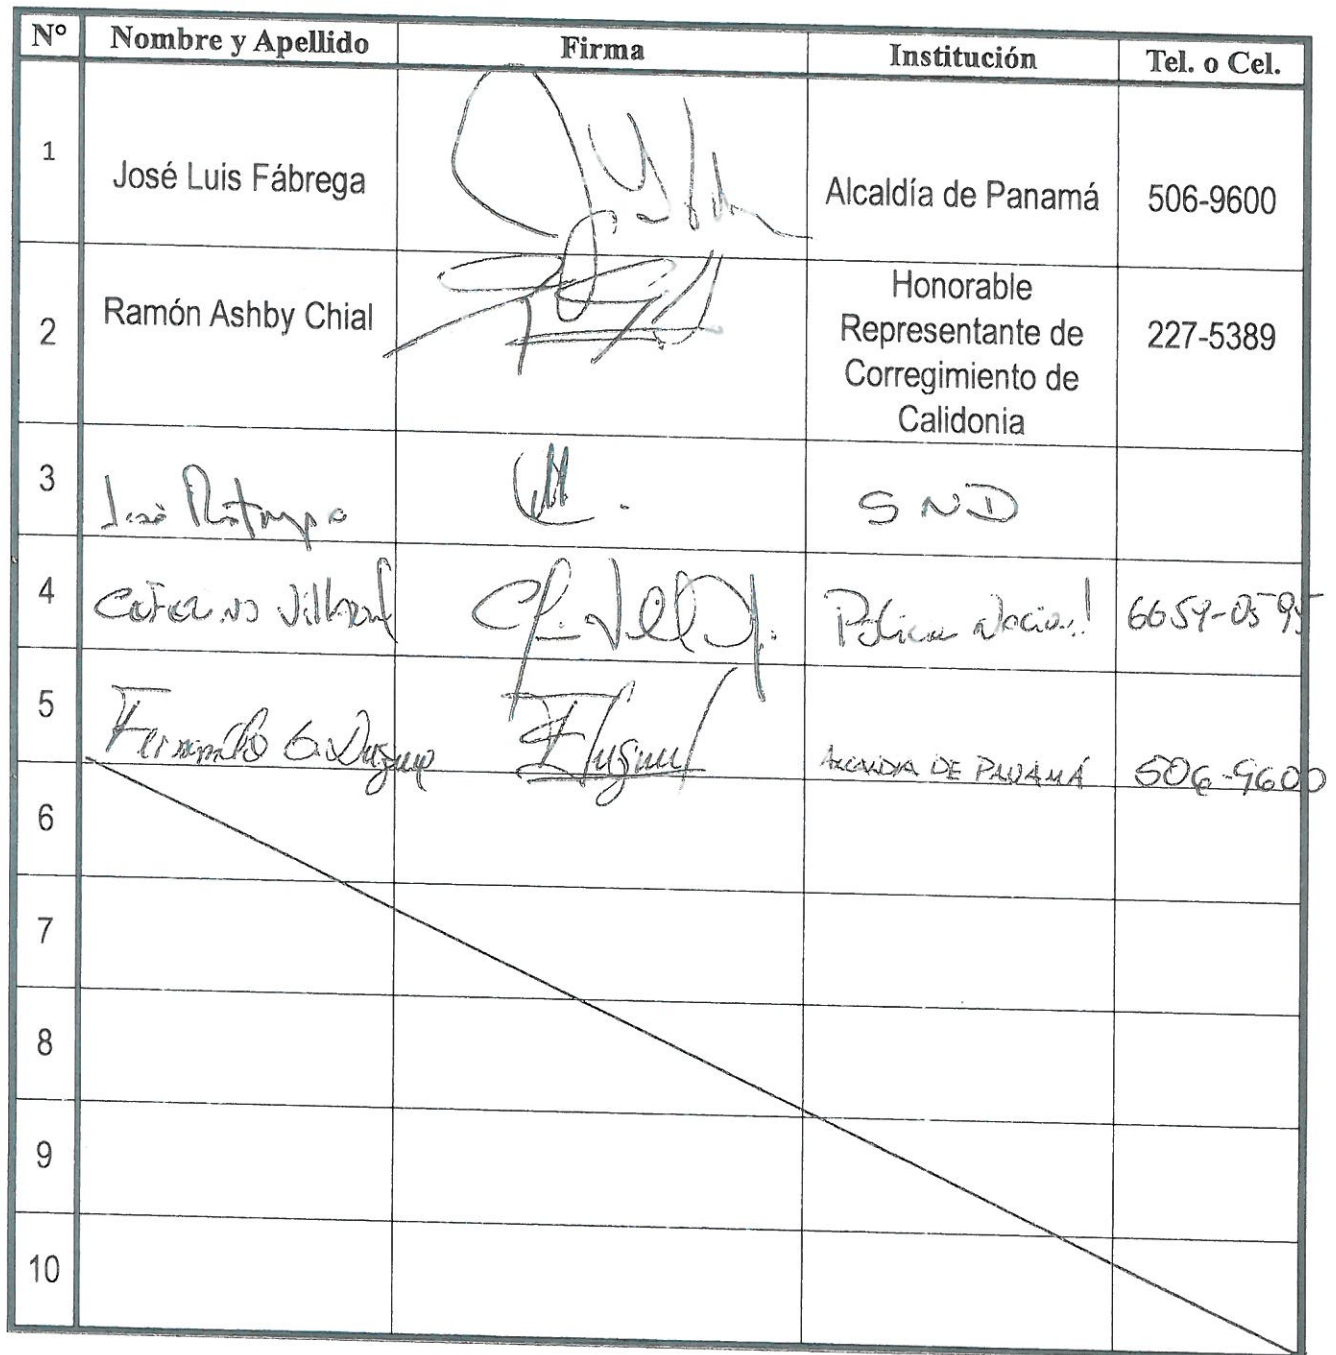 N° Nombre y Apellido Firma Institución Tel. o Cel.
1 José Luis Fábrega Alcaldía de Panamá 506-9600
2 Ramón Ashby Chial Honorable
Representante de
Corregimiento de
Calidonia 227-5389
3 José SND
4 Policia Nacional
5 Fernando G. Duque ALCALDIA DE PANAMÁ 506-9600
6
7
8
9
10